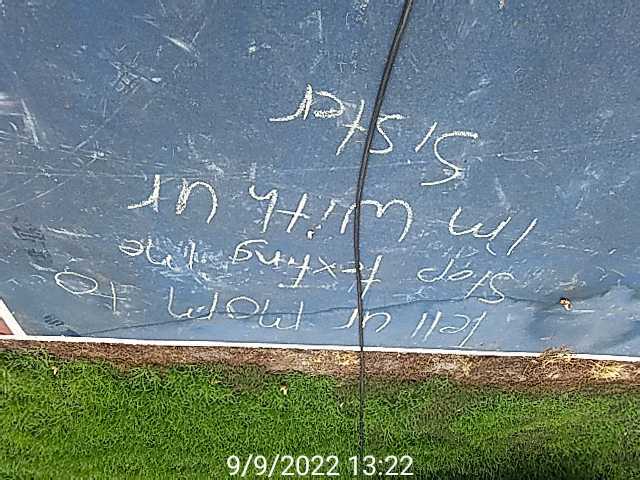 tell ur mom to
Stop texting me
Im With ur
Sister
9/9/2022 13:22